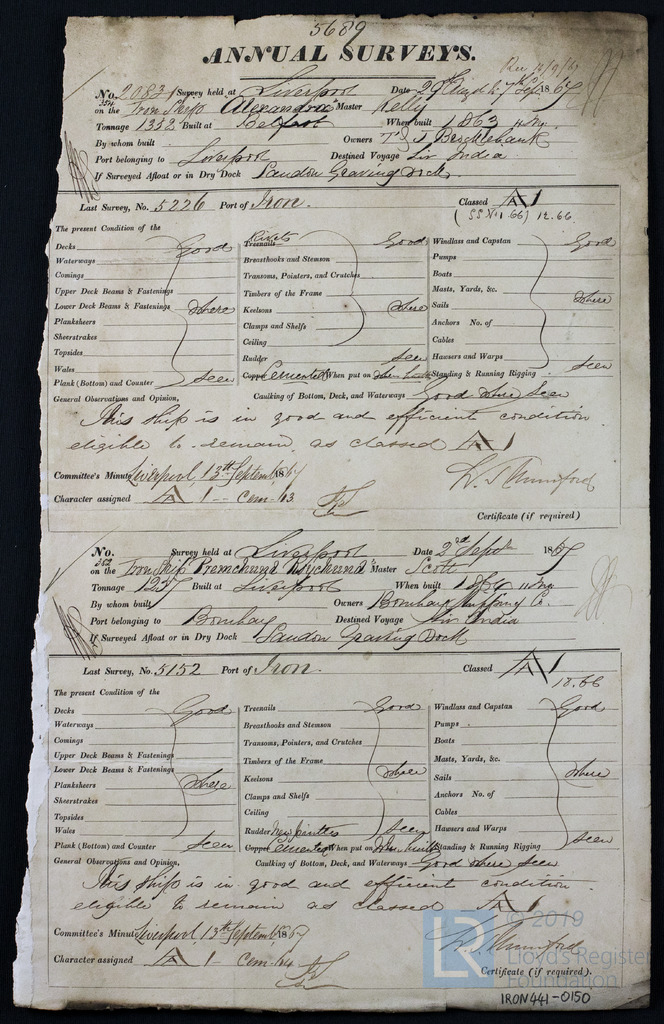 5689
ANNUAL SURVEYS.
No. 2083 Survey held at Liverpool Date 29th Aug & 7th Sep 1867
on the Iron Ship Alexandra Master Kelly
Tonnage 1352 Built at Belfast When built 1863 11 Mo
By whom built Owners T & J Brocklebank
Port belonging to Liverpool Destined Voyage Liv India
If Surveyed Afloat or in Dry Dock Sandon Graving Dock
Last Survey, No. 5226 Port of Iron. Classed A 1
(SS No 1. 66) 12.66
The present Condition of the
Decks Good Rivets Treenails Good Windlass and Capstan Good
Waterways Breasthooks and Stemson Pumps
Comings Transoms, Pointers, and Crutches Boats
Upper Deck Beams & Fastenings Timbers of the Frame Masts, Yards, &c.
Lower Deck Beams & Fastenings where Keelsons where Sails where
Planksheers Clamps and Shelfs Anchors No. of
Sheerstrakes Ceiling Cables
Topsides Rudder seen Hawsers and Warps
Wales Copper Cemented When put on Standing & Running Rigging seen
Plank (Bottom) and Counter seen Caulking of Bottom, Deck, and Waterways Good where seen
General Observations and Opinion,
This ship is in good and efficient condition
eligible to remain as classed A 1
Committee's Minute Liverpool, 13th September 1867
Character assigned A 1 -- Cem. 63
Certificate (if required)
No. Survey held at Liverpool Date 2nd Sept 1867
352
on the Iron Ship "Premchund Roychund" Master Scott
Tonnage 1257 Built at Liverpool When built 1864 11 Mo
By whom built Owners Bombay Shipping Co.
Port belonging to Bombay Destined Voyage Liv India
If Surveyed Afloat or in Dry Dock Sandon Graving Dock
Last Survey, No. 5152 Port of Iron. Classed A 1
12.66
The present Condition of the
Decks Good Treenails Good Windlass and Capstan Good
Waterways Breasthooks and Stemson Pumps
Comings Transoms, Pointers, and Crutches Boats
Upper Deck Beams & Fastenings Timbers of the Frame Masts, Yards, &c.
Lower Deck Beams & Fastenings Keelsons where Sails where
Planksheers where Clamps and Shelfs Anchors No. of
Sheerstrakes Ceiling Cables
Topsides Rudder New pintles seen Hawsers and Warps
Wales Copper Cemented When put on When built Standing & Running Rigging seen
Plank (Bottom) and Counter seen Caulking of Bottom, Deck, and Waterways Good where seen
General Observations and Opinion,
This ship is in good and efficient condition
eligible to remain as classed A 1
Committee's Minute Liverpool, 13th September 1867
Character assigned A 1 Cem. 64
Certificate (if required).
LR © 2019
Lloyd's Register
Foundation
IRON441-0150